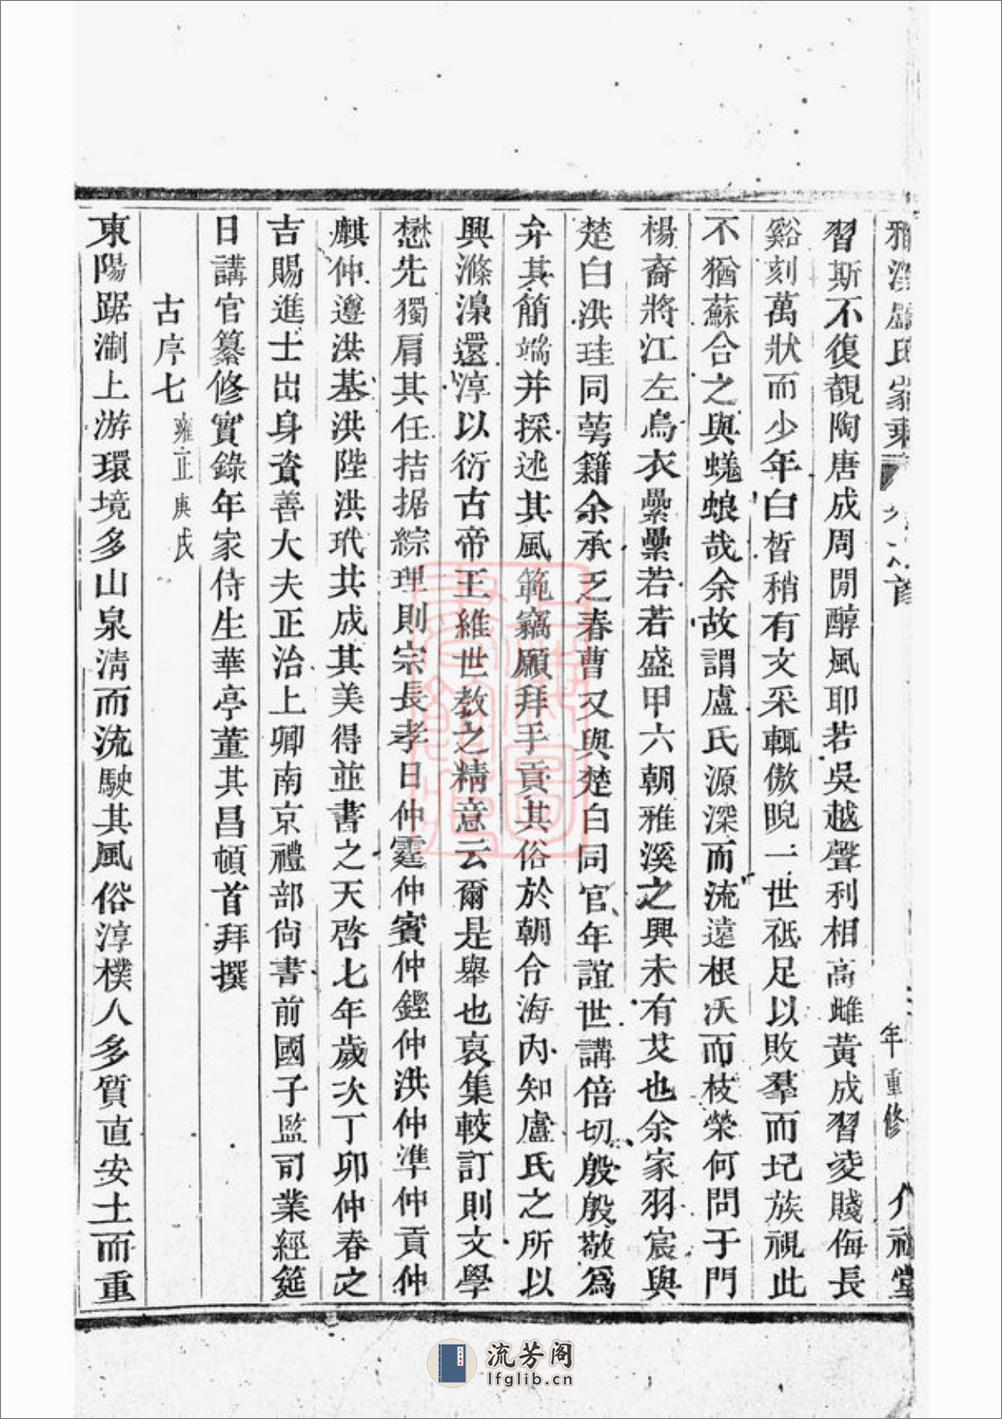 雅溪盧氏家乘
年重修
習斯不復覩陶唐成周閒醇風耶若吳越聲利相高雌黃成習凌賤侮長
谿刻萬狀而少年白皙稍有文采輒傲睨一世祗足以敗羣而圮族視此
不猶蘇合之與蜣蜋哉余故謂盧氏源深而流遠根沃而枝榮何問于門
楊裔將江左烏衣纍纍若若盛甲六朝雅溪之興未有艾也余家羽宸與
楚白洪珪同蕚籍余承乏春曹又與楚白同官年誼世講倍切殷殷敬爲
弁其簡端并採述其風範竊願拜手貢其俗於朝令海內知盧氏之所以
興滌澡還淳以衍古帝王維世教之精意云爾是舉也裒集較訂則文學
懋先獨肩其任拮据綜理則宗長孝日仲霆仲賓仲鏗仲洪仲準仲貢仲
麒仲遵洪基洪陛洪玳共成其美得並書之天啓七年歲次丁卯仲春之
吉賜進士出身資善大夫正治上卿南京禮部尙書前國子監司業經筵
日講官纂修實錄年家侍生華亭董其昌頓首拜撰
古序七 雍正庚戌
東陽踞淛上游環境多山泉清而流駛其風俗淳樸人多質直安土而重
流芳阁
lfglib.cn